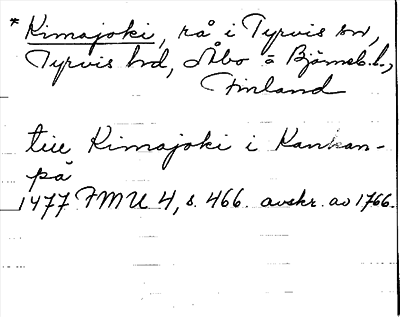 * Kimajoki, rå i Tyrvis sn,
Tyrvis hd, Åbo = Björneb. l.,
Finland
till Kimajoki i Kankan-
pä
1477 FMU 4, s. 466. avskr. av 1766.